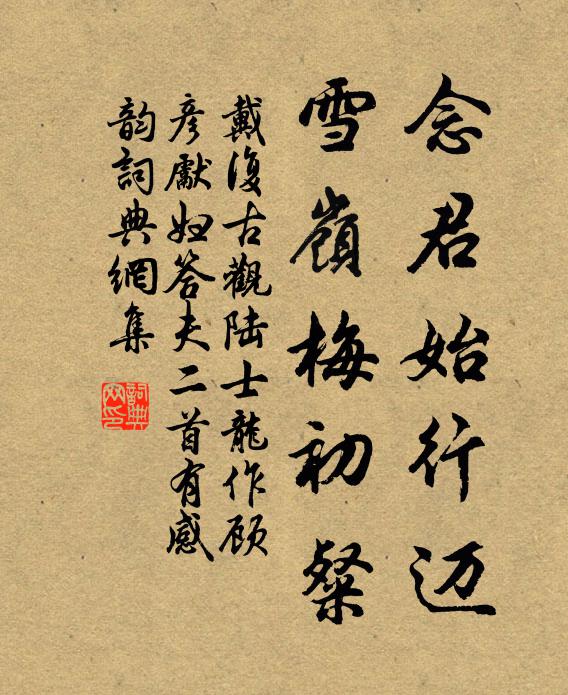 念君始行迈
雪嶺梅初粲
戴復古觀陆士龍作顾
彦獻妞答夫二首有感
韵詞典網集
詞典
网印